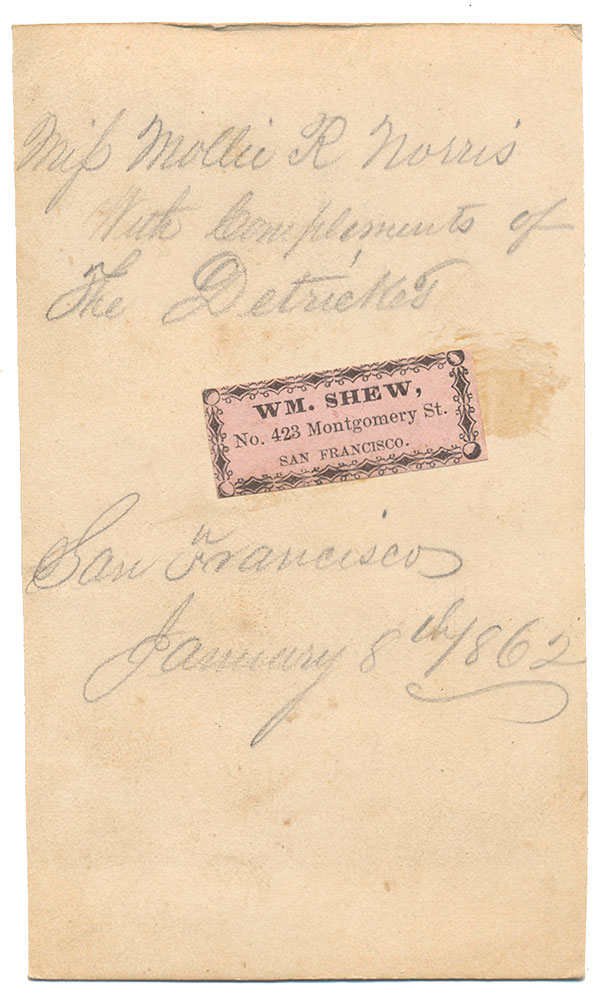 Miss Mollie R Norris
With Compliments of
The Detricks
WM. SHEW,
No. 423 Montgomery St.
SAN FRANCISCO.
San Francisco
January 8th/1862